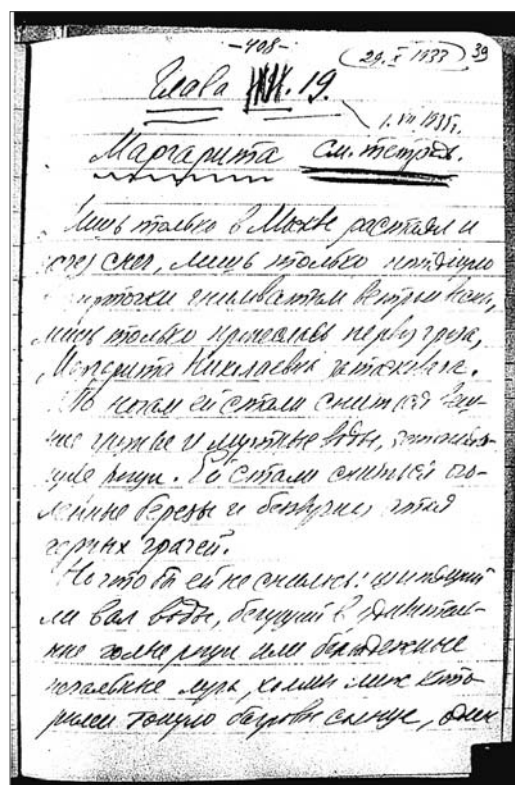 -408- (29.X 1933) 39
Глава 19.
1.VII.1935г.
Маргарита см. тетрадь.
Лишь только в Москве растаял и
снег, лишь только потянуло
в форточки гниловатым ветром весны,
лишь только пронеслась первая гроза,
Маргарита Николаевна затосковала.
По ночам ей стали сниться
мутные воды, затопляю-
щие рощи. Ей стали сниться ого-
ленные березы и беззвучная стая
черных грачей.
Но что бы ей не снилось: шипящий
ли вал воды, бегущий в
рощи или безнадежные
печальные луга, холмы меж кото-
рыми тонуло багровое солнце, один